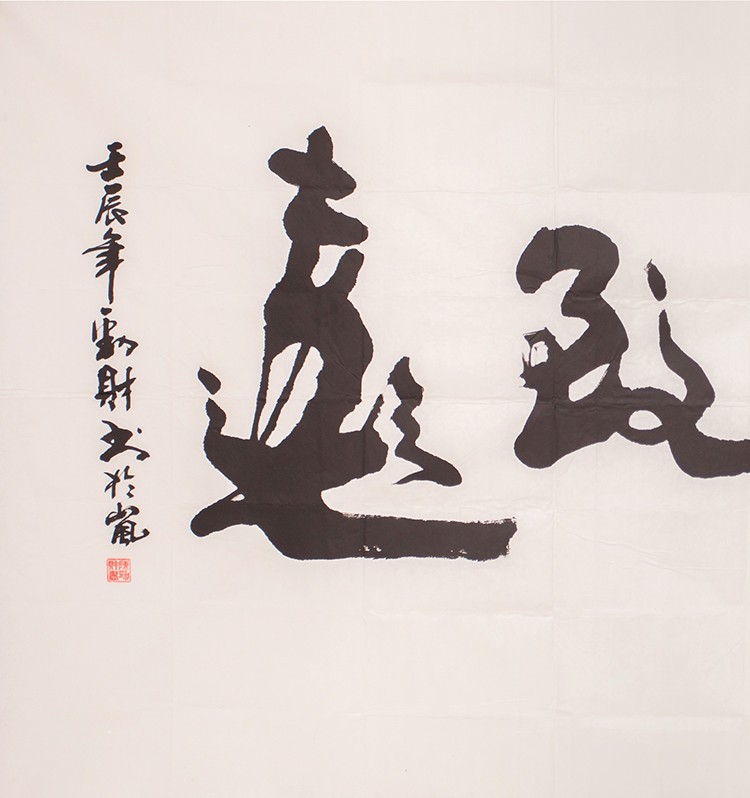 致遠
壬辰年財书於嵐